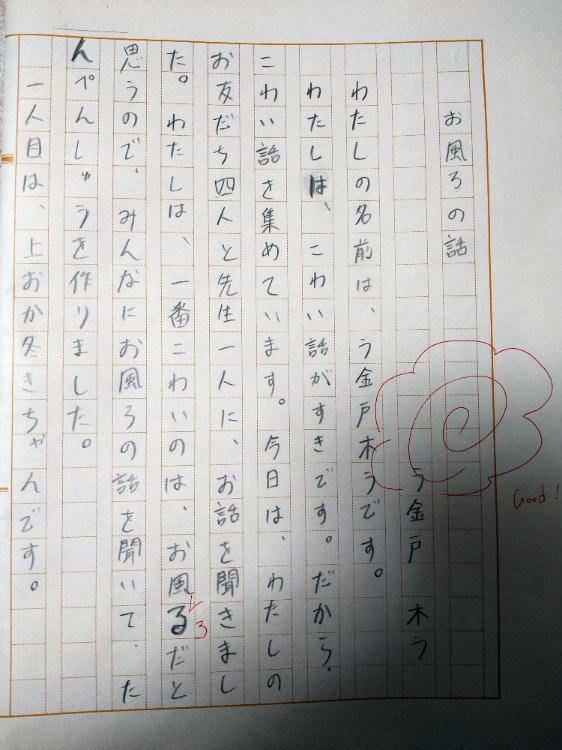 お風ろの話
う金戸 木う
わたしの名前は、う金戸木うです。
わたしは、こわい話がすきです。だから、
こわい話を集めています。今日は、わたしの
お友だち四人と先生一人に、お話を聞きまし
た。わたしは、一番こわいのは、お風るだと
思うので、みんなにお風ろの話を聞いて、た
んぺんしゅうを作りました。
一人目は、上おか冬きちゃんです。
ろ
Good!